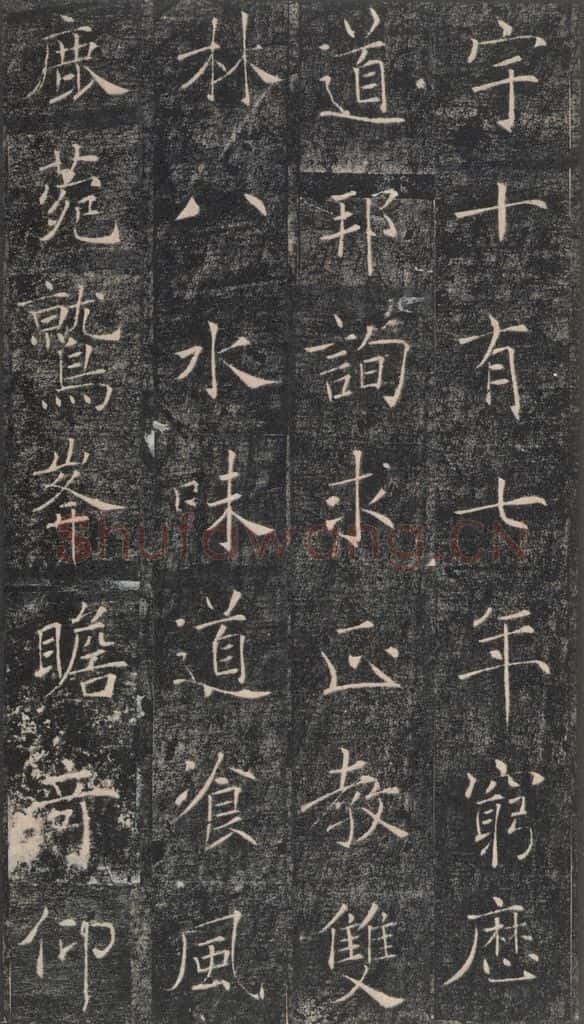 宇十有七年窮歷
道邦詢求正教雙
林八水味道飡風
鹿菀鷲峯瞻奇仰
shufawang.CN